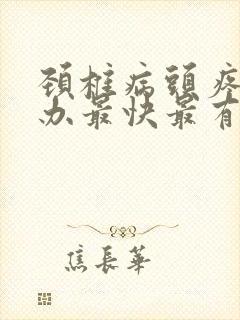 頚椎病頭疼
办最快最有
焦長華